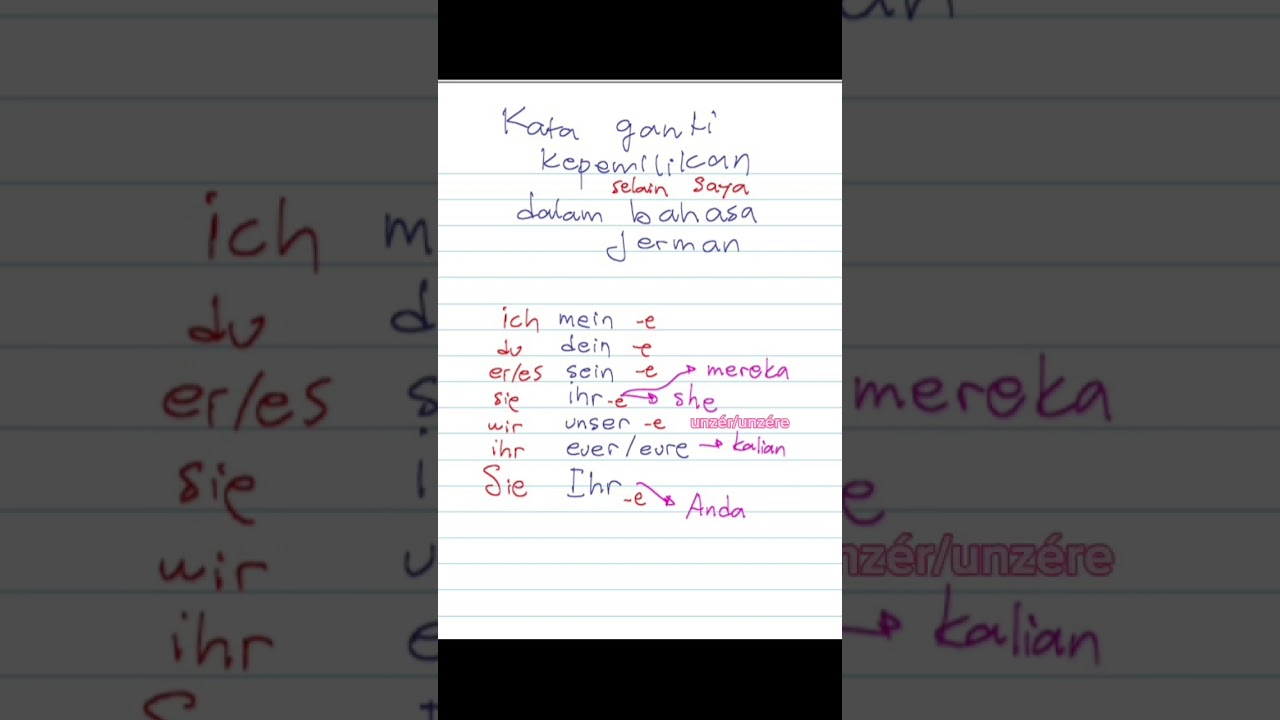 Kata ganti
kepemilikan
selain saya
dalam bahasa
Jerman
ich mein -e
du dein -e
er/es sein -e mereka
sie ihr -e she
wir unser -e unzér/unzére
ihr euer/eure → kalian
Sie Ihr -e Anda